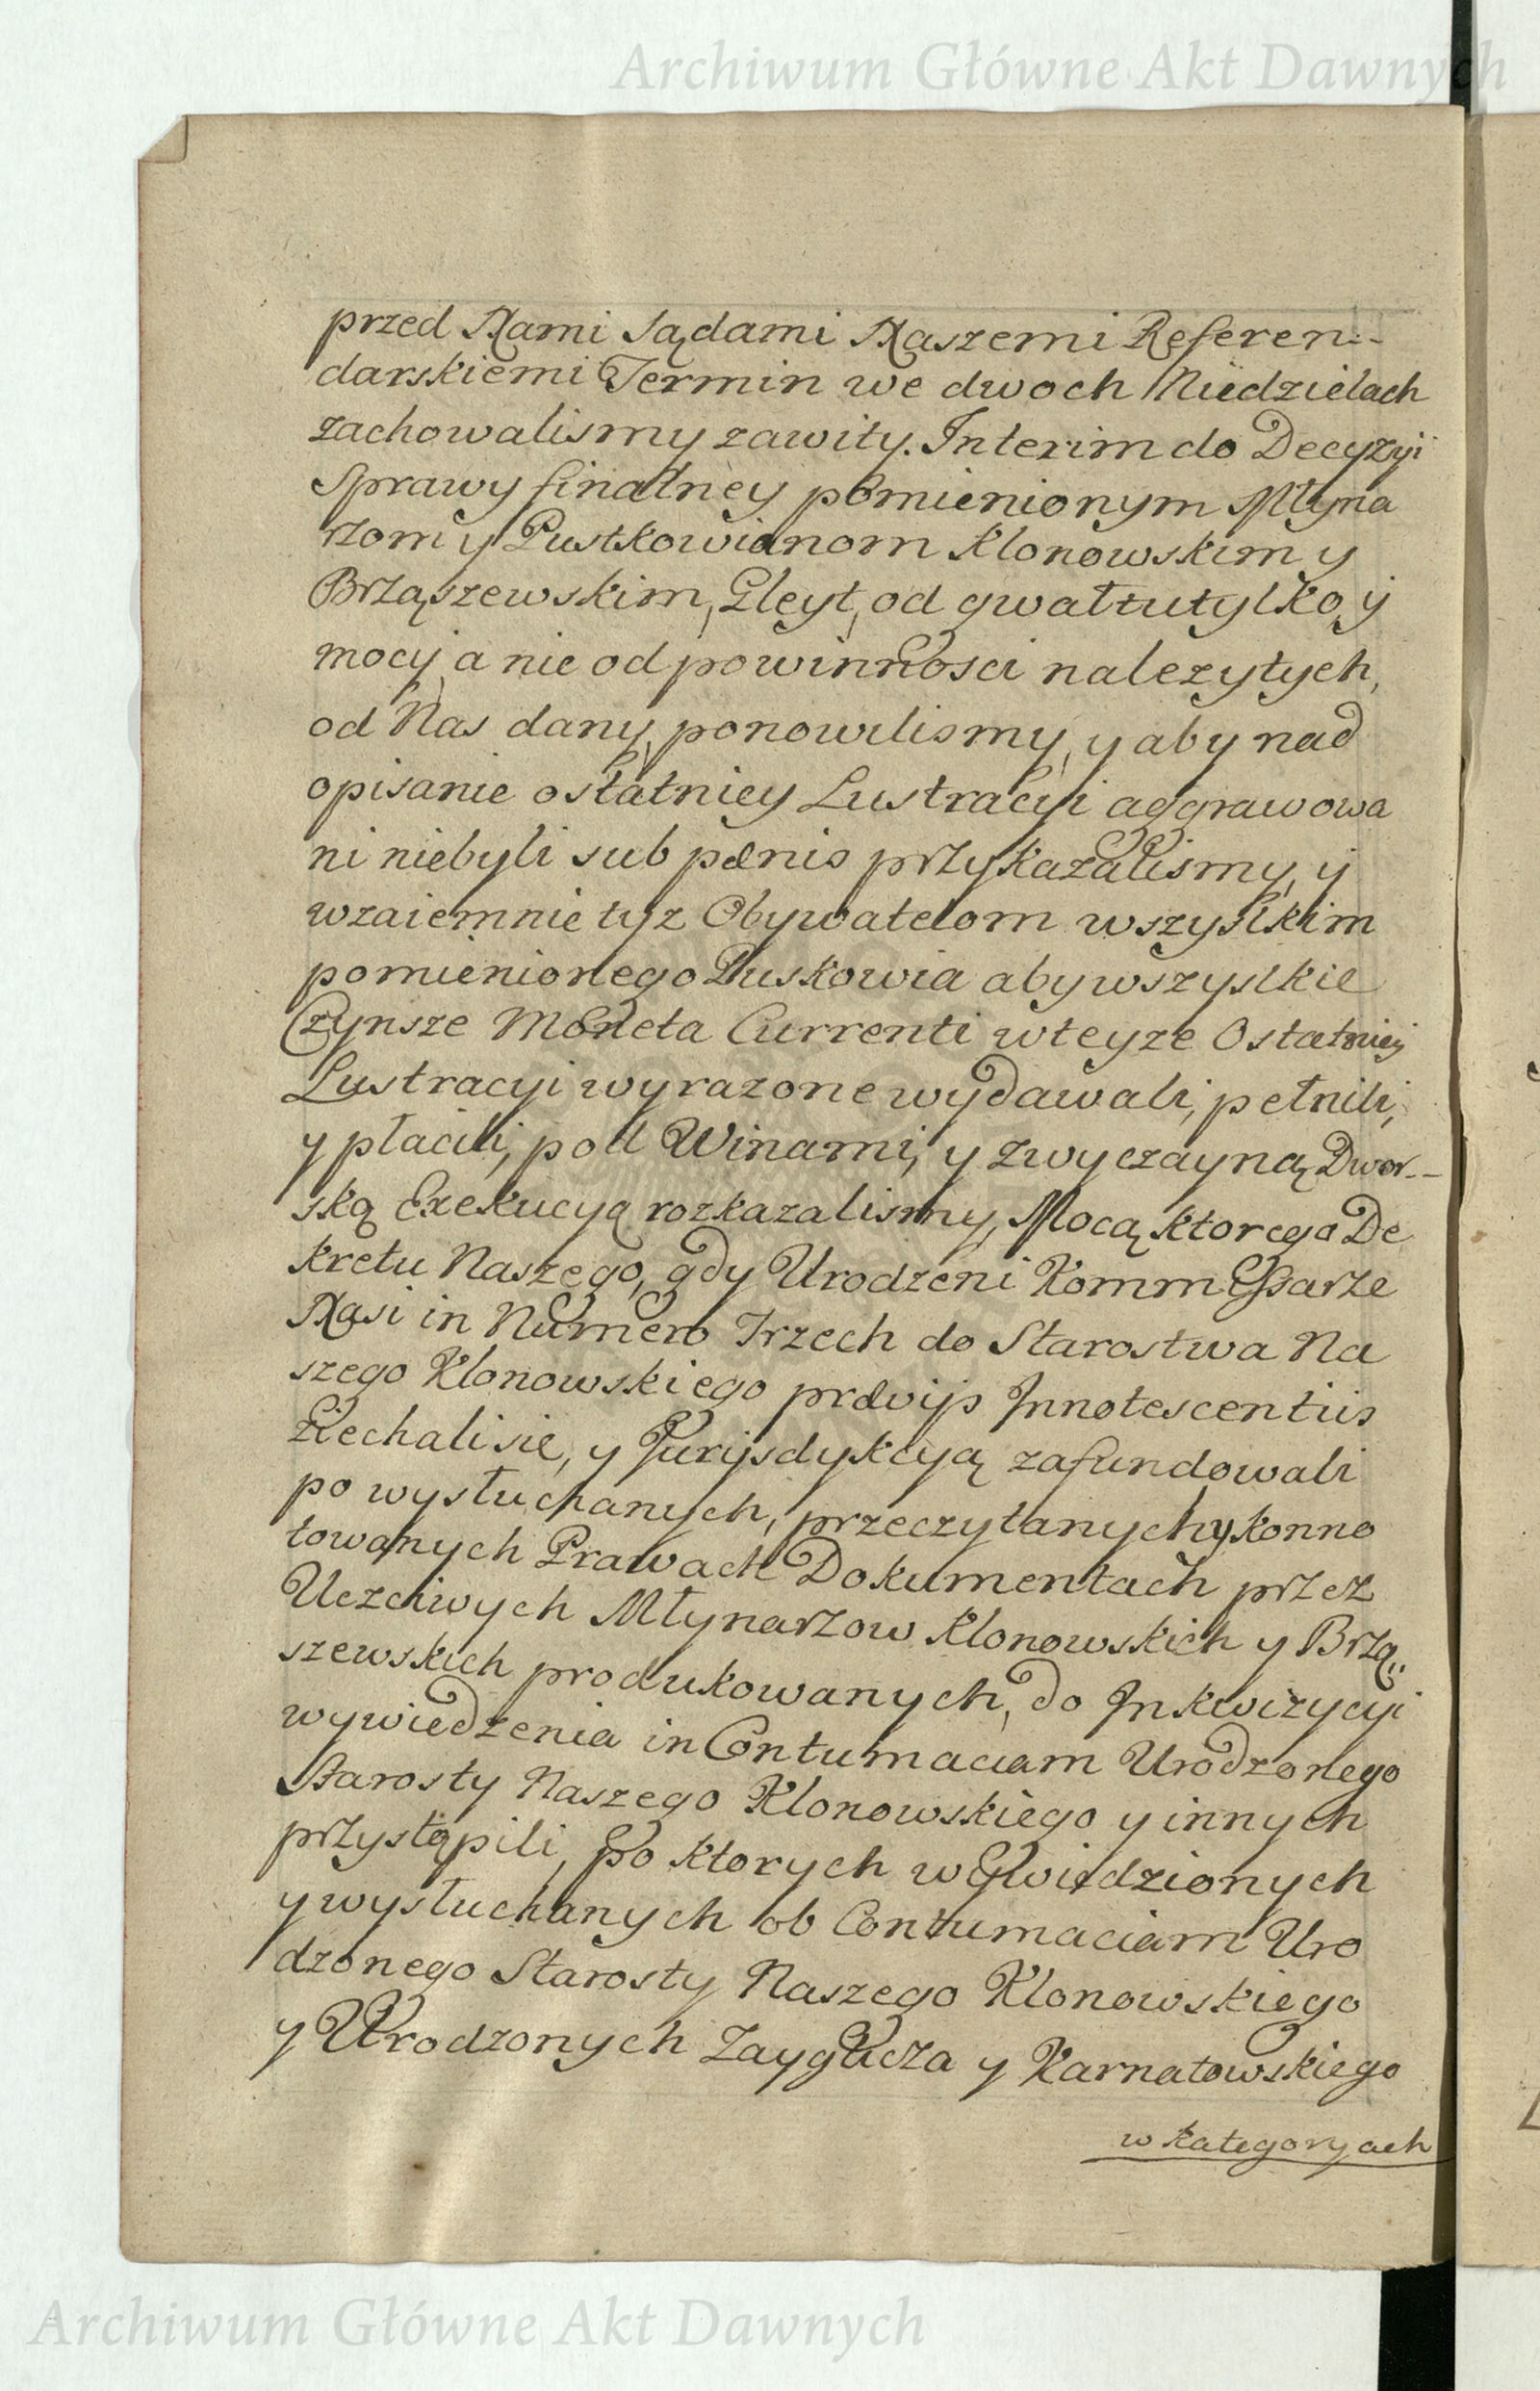 Archiwum Główne Akt Dawnych
przed Nami Sądami Naszemi Referen-
darskiemi Termin we dwoch Niedzielach
zachowalismy zawity. Interim do Decyzyi
Sprawy finalney pomienionym Młyna
rzom y Pustkowianom Klonowskim y
Brząszewskim, Gleyt, od gwałtu tylko, y
mocy, a nie od powinności nalezytych,
od Nas dany, ponowilismy, y aby nad
opisanie ostatniey Lustracyi aggrawowa
ni niebyli sub pænis przykazalismy, y
wzaiemnie tyz Obywatelom wszystkim
pomienionego Puskowia aby wszystkie
Czynsze Moneta Currenti w teyze Ostatniey
Lustracyi wyrazone wydawali, pełnili,
y płacili, pod Winami, y zwyczayną Dwor-
ską Exekucyą rozkazalismy, Mocą ktorego De
kretu Naszego, gdy Urodzeni Kommissarze
Nasi in Numero Trzech do Starostwa Na
szego Klonowskiego prævijs Innotescentiis
ziechali sie, y Jurysdykcyą zafundowali
po wysłuchanych, przeczytanych y konno
towanych Prawach Dokumentach przez
Uczciwych Młynarzow Klonowskich y Brzą„
szewskich produkowanych, do Inkwizycyi
wywiedzenia in Contumaciam Urodzonego
Starosty Naszego Klonowskiego y innych
przystąpili, Po ktorych wywiedzionych
y wysłuchanych ob Contumaciam Uro
dzonego Starosty Naszego Klonowskiego
y Urodzonych Zayglicza y Karnatowskiego
w kategoryach
Archiwum Główne Akt Dawnych